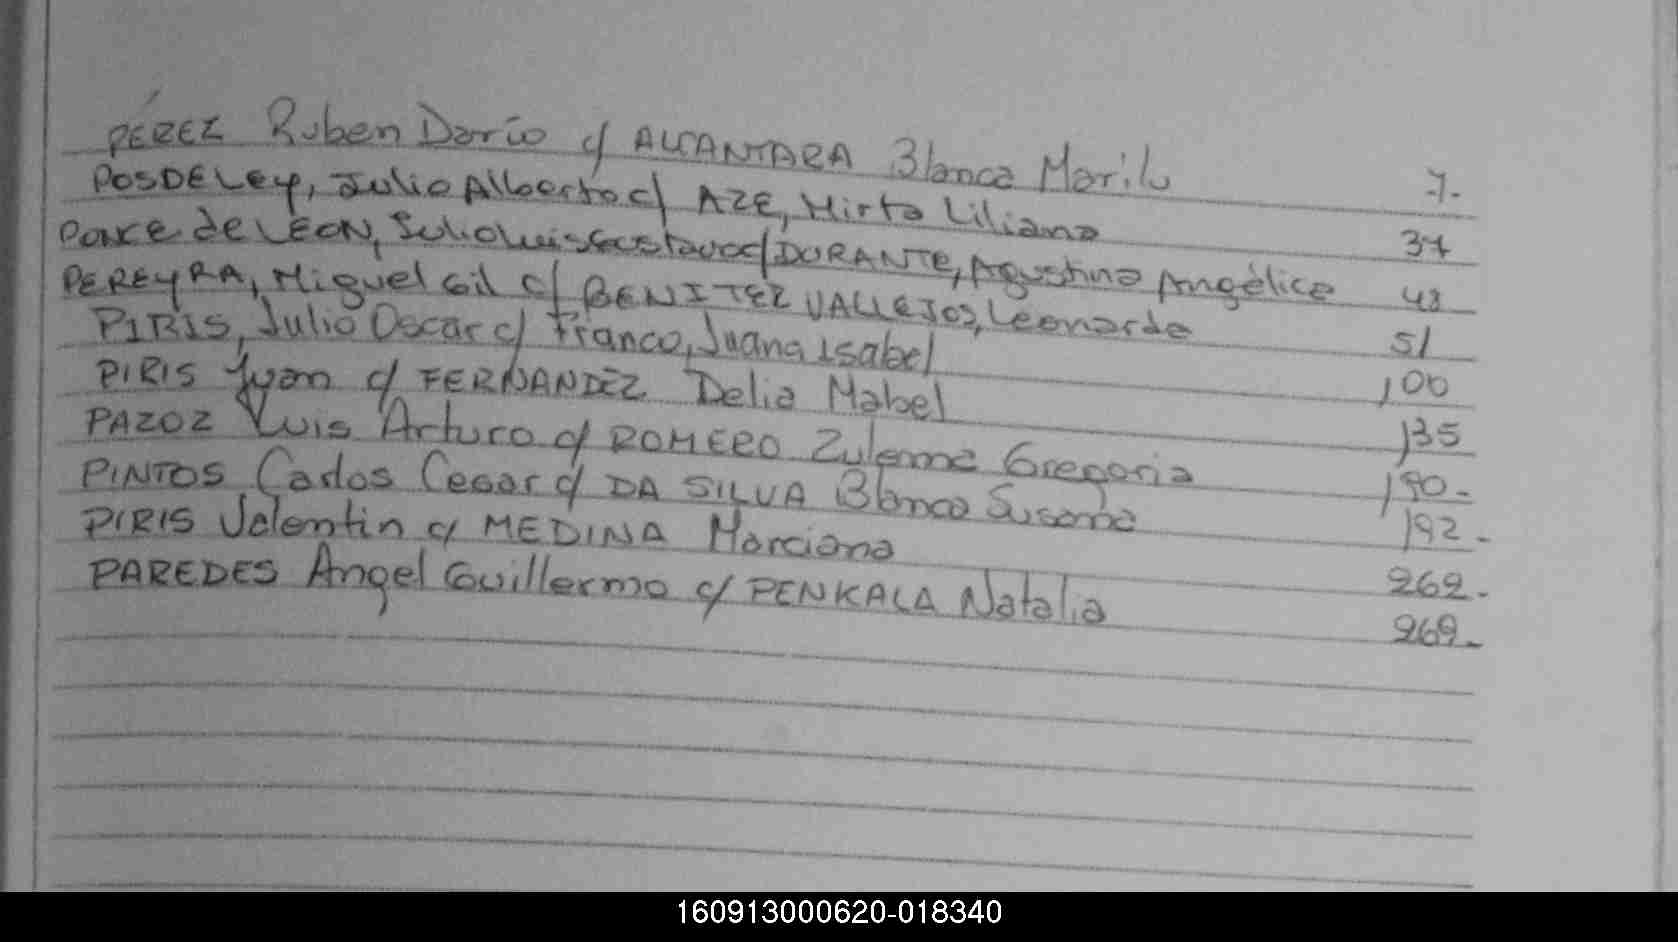 PÉREZ Ruben Dario c/ ALCANTARA Blanca Marilu 7.-
POSDELEY, Julio Alberto c/ AZE, Mirta Liliana 37
PONCE de LEON, Julio Luis Gustavo c/ DURANTE, Agustina Angélica 43
PEREYRA, Miguel Gil c/ BENITEZ VALLEJOS, Leonarda 51
PIRIS, Julio Oscar c/ Franco, Juana Isabel 100
PIRIS Juan c/ FERNANDEZ Delia Mabel 135
PAZOZ Luis Arturo c/ ROMERO Zulema Gregoria 190-
PINTOS Carlos Cesar c/ DA SILVA Blanca Susana 192-
PIRIS Valentin c/ MEDINA Marciana 262-
PAREDES Angel Guillermo c/ PENKALA Natalia 269-
160913000620-018340